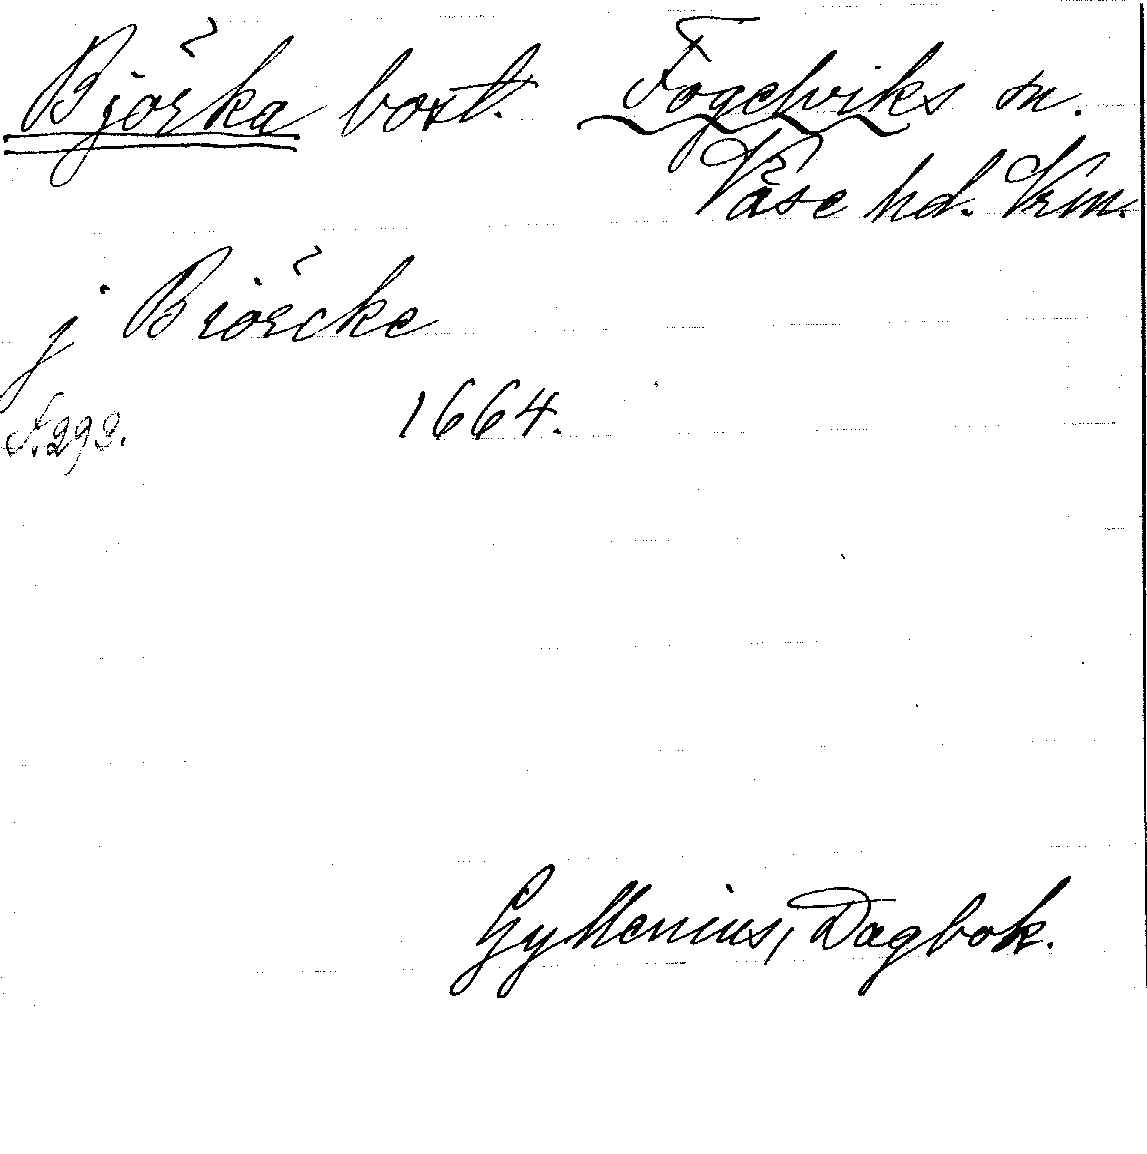 Björka bost. Fogelviks sn.
Väse hd. Vrm.
j Biörcke
S. 292. 1664.
Gyllenius, Dagbok.